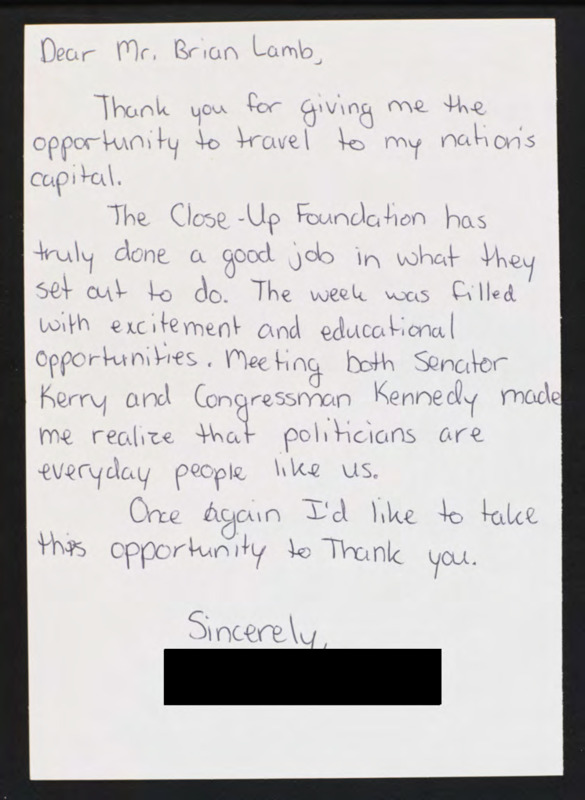 Dear Mr. Brian Lamb,
Thank you for giving me the
opportunity to travel to my nation's
capital.
The Close-Up Foundation has
truly done a good job in what they
set out to do. The week was filled
with excitement and educational
opportunities. Meeting both Senator
Kerry and Congressman Kennedy made
me realize that politicians are
everyday people like us.
Once again I'd like to take
this opportunity to Thank you.
Sincerely,